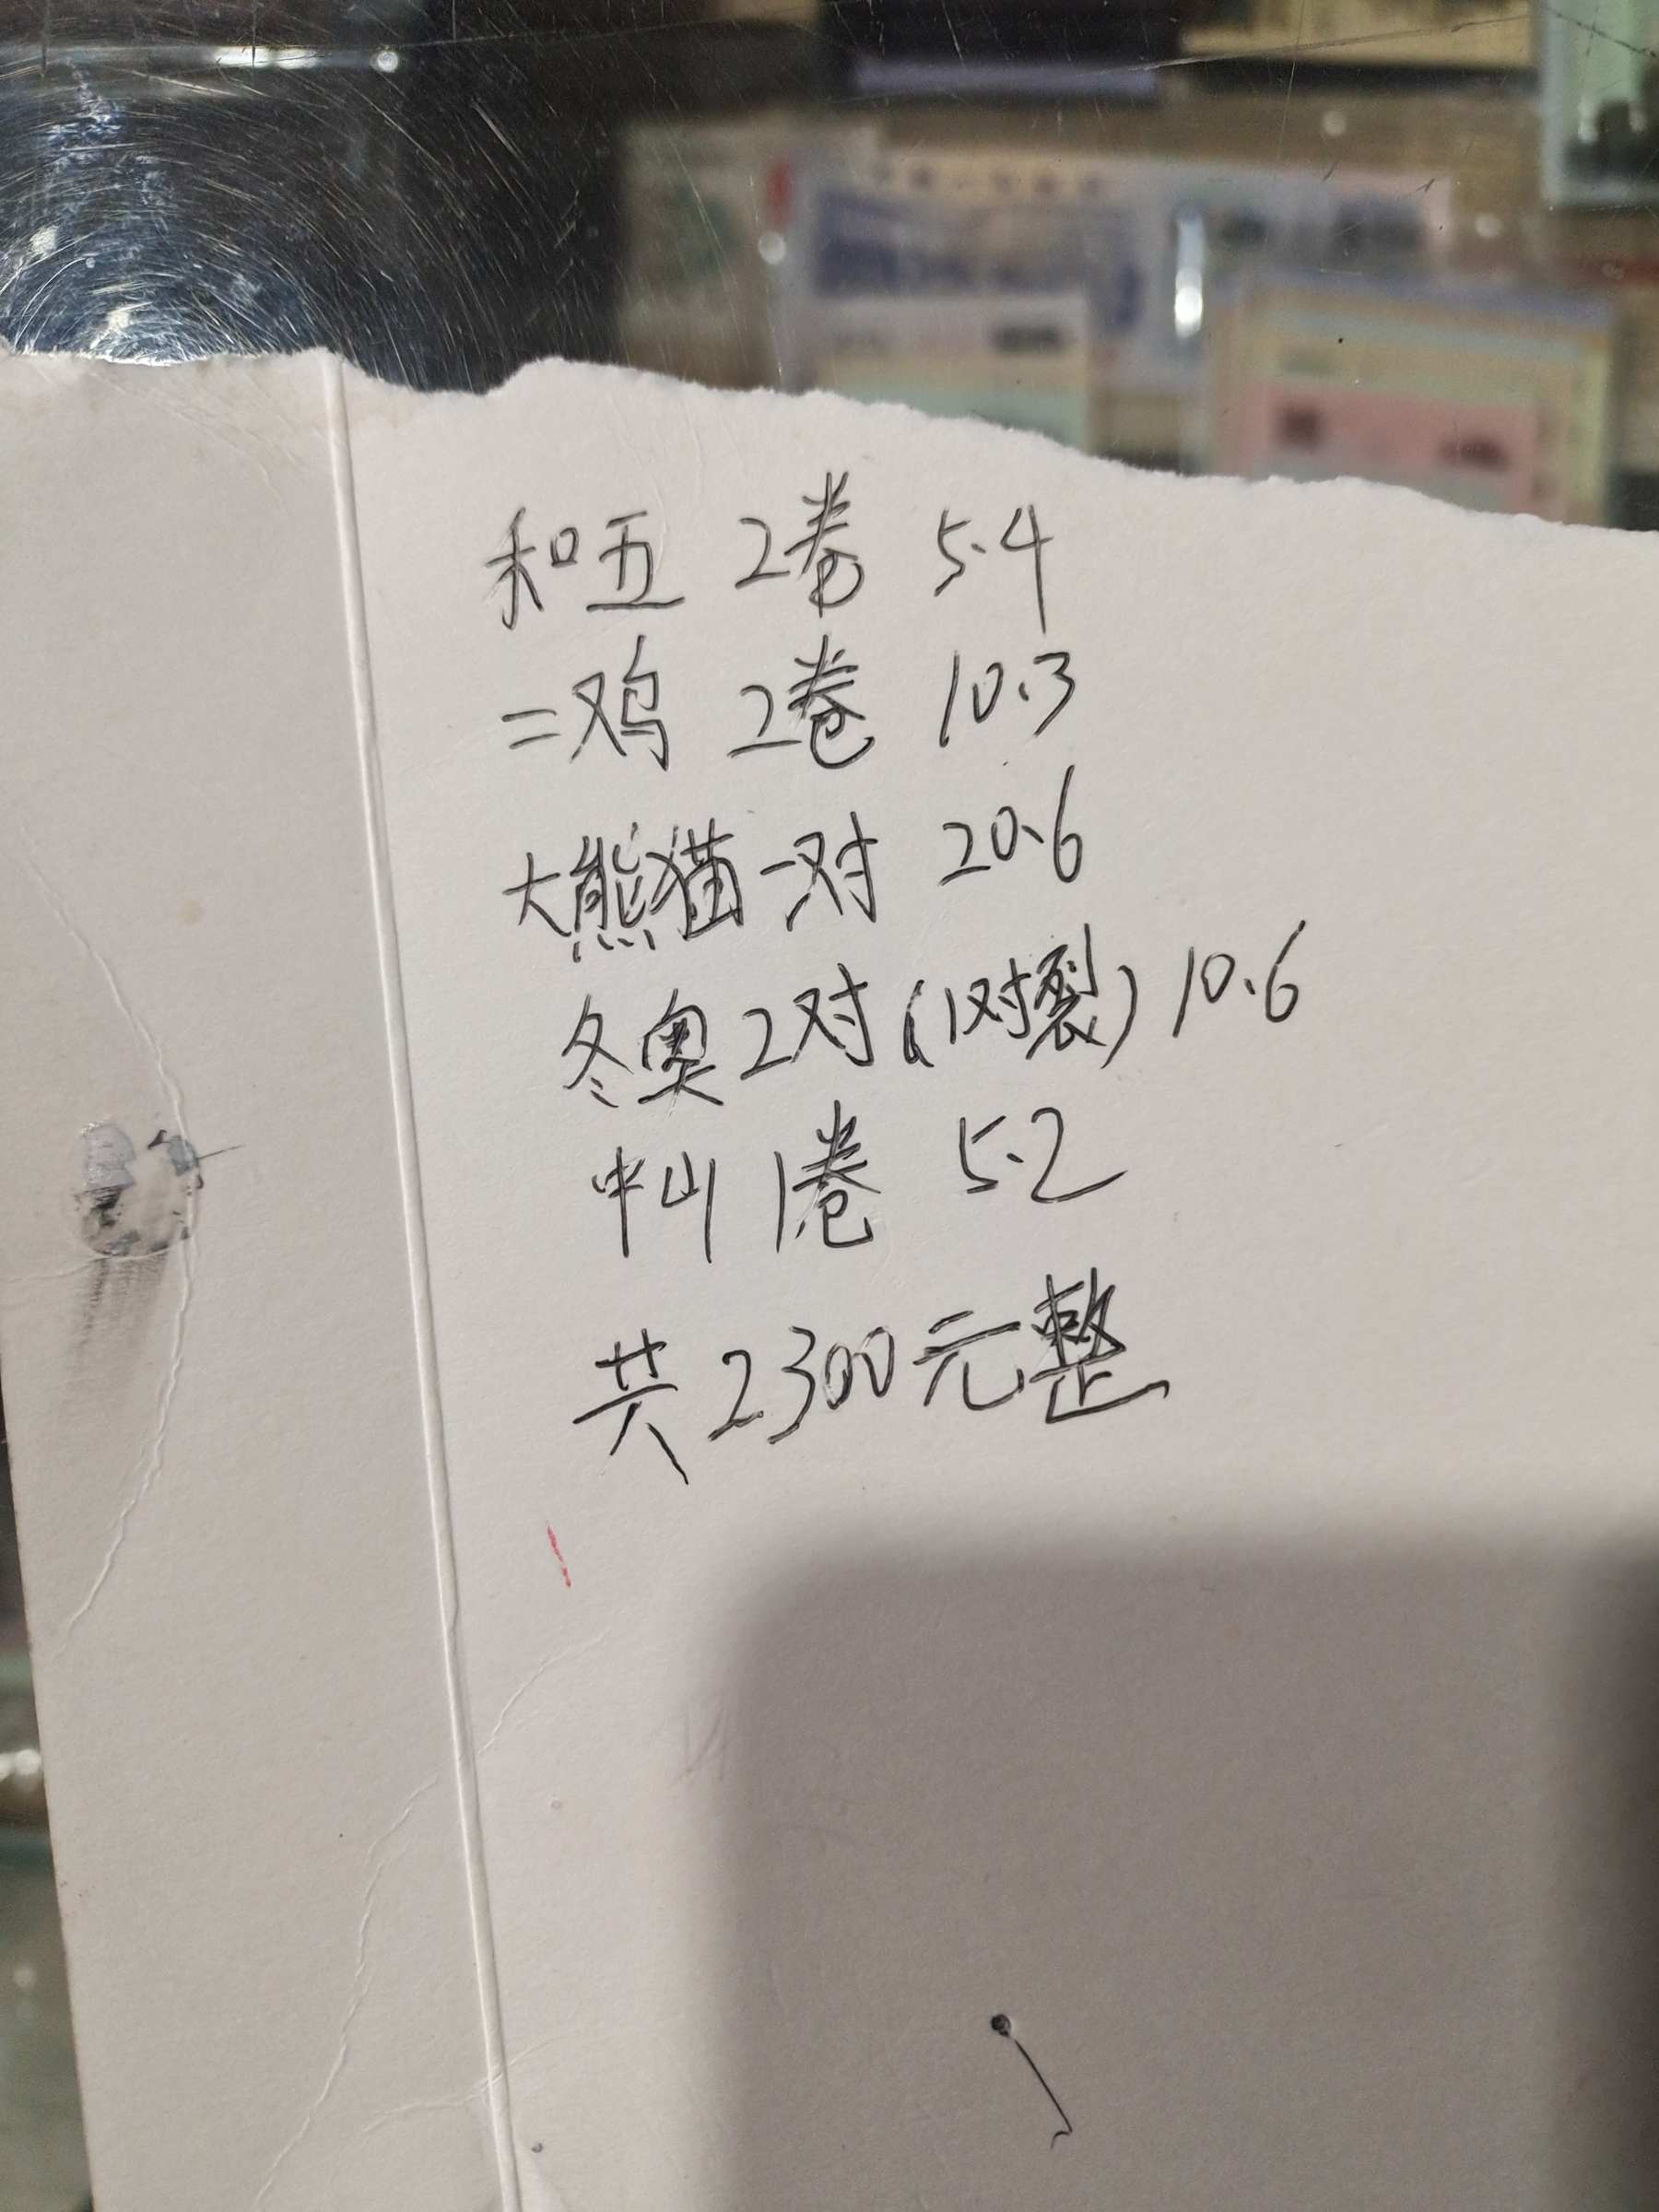 和五 2卷 5.4
二鸡 2卷 10.3
大熊猫一对 20.6
冬奥2对(1对裂) 10.6
中山 1卷 5.2
共2300元整